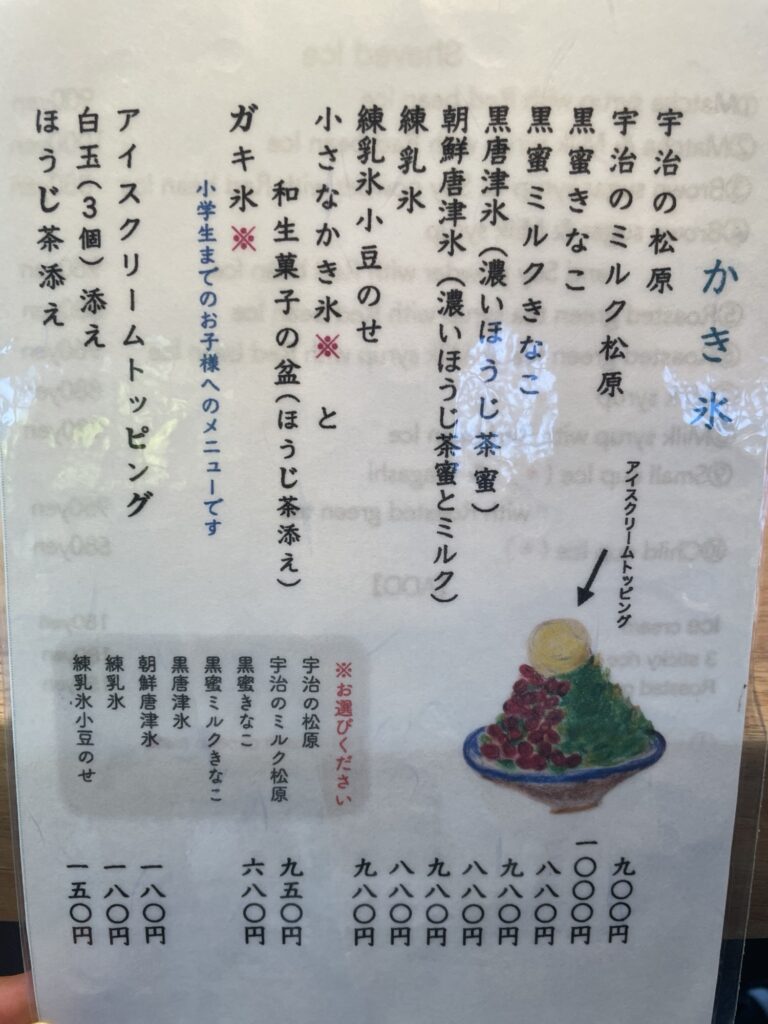 かき氷
宇治の松原 九〇〇円
宇治のミルク松原 一〇〇〇円
黒蜜きなこ 八八〇円
黒蜜ミルクきなこ 九八〇円
黒唐津氷(濃いほうじ茶蜜) 八八〇円
朝鮮唐津氷(濃いほうじ茶蜜とミルク) 九八〇円
練乳氷 八八〇円
練乳氷小豆のせ 九八〇円
小さなかき氷※ と
和生菓子の盆(ほうじ茶添え) 九五〇円
ガキ氷※ 六八〇円
小学生までのお子様へのメニューです
アイスクリームトッピング 一八〇円
白玉(3個)添え 一八〇円
ほうじ茶添え 一五〇円
アイスクリームトッピング
※お選びください
宇治の松原
宇治のミルク松原
黒蜜きなこ
黒蜜ミルクきなこ
黒唐津氷
朝鮮唐津氷
練乳氷
練乳氷小豆のせ